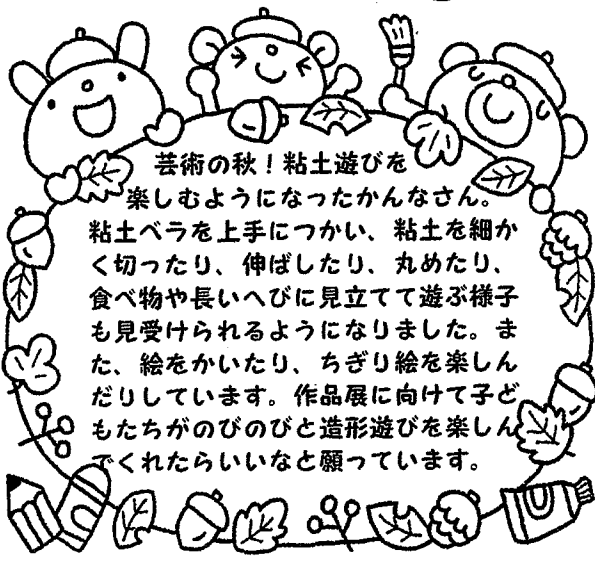 芸術の秋！粘土遊びを
楽しむようになったかんなさん。
粘土ベラを上手につかい、粘土を細か
く切ったり、伸ばしたり、丸めたり、
食べ物や長いへびに見立てて遊ぶ様子
も見受けられるようになりました。ま
た、絵をかいたり、ちぎり絵を楽しん
だりしています。作品展に向けて子ど
もたちがのびのびと造形遊びを楽しん
でくれたらいいなと願っています。